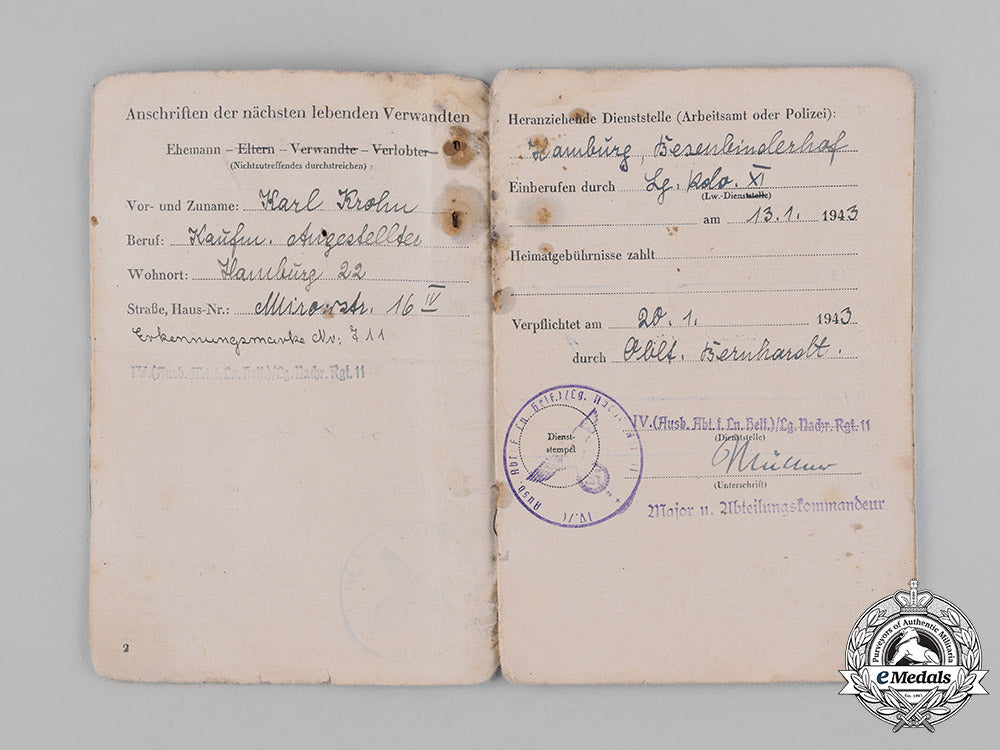 Anschriften der nächsten lebenden Verwandten
Ehemann – Eltern – Verwandte – Verlobter
(Nichtzutreffendes durchstreichen)
Vor- und Zuname: Karl Krohn
Beruf: Kaufm. Angestellter
Wohnort: Hamburg 22
Straße, Haus-Nr.: Mirowstr. 16 IV
Erkennungsmarke Nr: 711
IV.(Ausb. Abt. f. Ln. Helf.)/Lg. Nachr. Rgt. 11
2
Heranziehende Dienststelle (Arbeitsamt oder Polizei):
Hamburg, Besenbinderhof
Einberufen durch Lg. Kdo. XI
(Lw.-Dienststelle)
am 13.1. 1943
Heimatgebührnisse zahlt
Verpflichtet am 20.1. 1943
durch Oblt. Bernhardt.
IV./( Ausb. Abt. f. Ln. Helf.)/Lg. Nachr.
Dienst-
stempel
IV.(Ausb. Abt. f. Ln. Helf.)/Lg. Nachr. Rgt. 11
(Dienststelle)
(Unterschrift)
Major u. Abteilungskommandeur
Purveyors of Authentic Militaria
eMedals